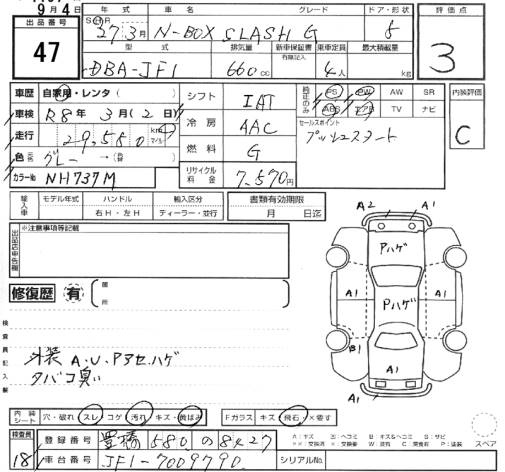 9月4日
出品番号
47
年式 車名 グレード ドア・形状
SHR 27年3月 N-BOX SLASH G 5
型式 排気量 新車保証書 乗車定員 最大積載量
有限記入
DBA-JF1 660cc 4人 kg
評価点
3
車歴 自家用・レンタ( )
車検 R8年3月(2日)
走行 29,580 km
色 元色 グレー →(替 )
カラーNo NH737M
シフト IAT
冷房 AAC
燃料 G
リサイクル料金 7,570円
純正のみ PS PW AW SR
ABS エアB TV ナビ
セールスポイント
プッシュスタート
内装評価
C
輸入車 モデル年式 ハンドル 輸入区分
右H・左H ディーラー・並行
書類有効期限
月 日迄
出品店申告欄
※注意事項等記載
修復歴 有 箇所
検査員記入欄
外装 A.U.Pアセ.ハゲ
タバコ臭い
A2 A1
Pハゲ
A1 Pハゲ A1
B1 A1
A1
スペア
内装シート 穴・破れ スレ コゲ 汚れ キズ・黄ばみ
Fガラス キズ 飛石 ×要す
検査員
18
登録番号 豊橋 580 の 8427
車台番号 JF1-7009790
シリアルNo.